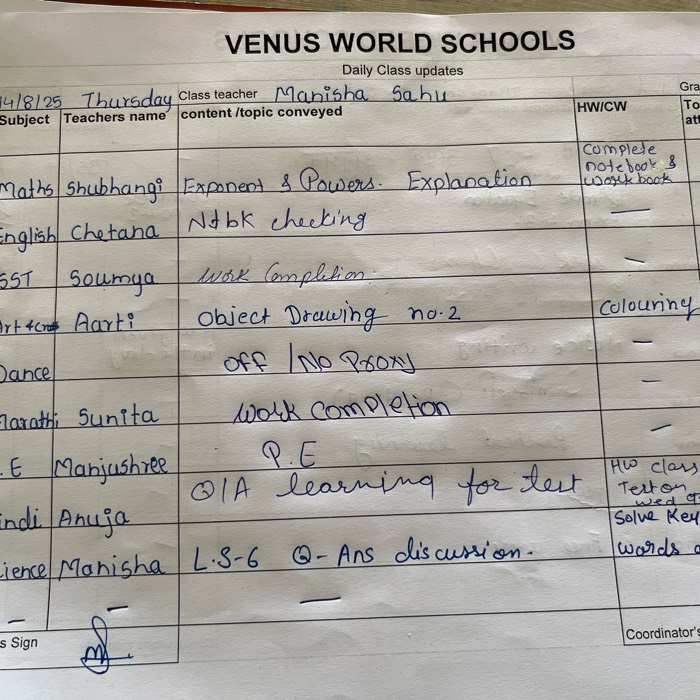 VENUS WORLD SCHOOLS
Daily Class updates
14/8/25 Thursday Class teacher Manisha Sahu Gra
Subject Teachers name content /topic conveyed HW/CW To
att
Maths Shubhangi Exponent & Powers. Explanation Complete
notebook &
workbook
English Chetana Ntbk checking —
SST Soumya Work Completion. —
Art & Aarti Object Drawing no.2 Colouring
Dance off / No Proxy —
Marathi Sunita Work completion —
.E Manjushree P.E —
indi Anuja Q/A learning for test HW class
Test on
wed
ience Manisha L.S-6 Q-Ans discussion. Solve Key
words
— — —
s Sign Coordinator's